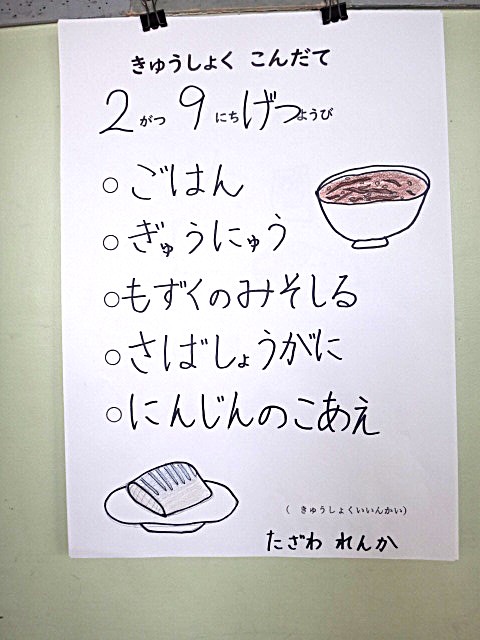 きゅうしょく こんだて
2がつ 9にち げつようび
○ ごはん
○ ぎゅうにゅう
○ もずくのみそしる
○ さばしょうがに
○ にんじんのこあえ
( きゅうしょくいいんかい)
たざわ れんか